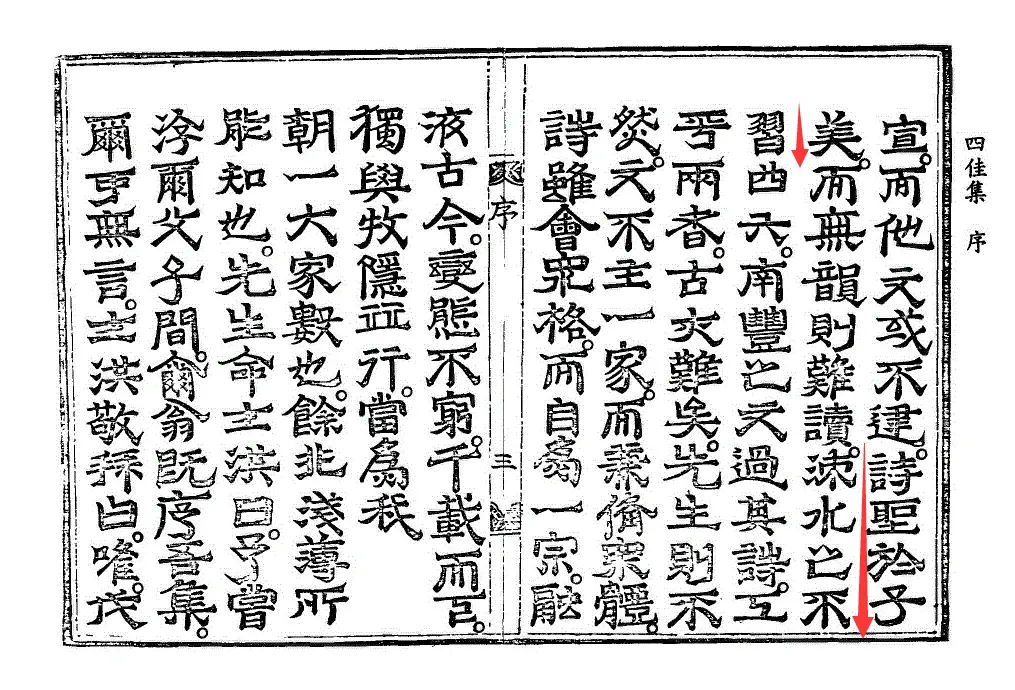 四佳集 序
宣。而他文或不逮。詩聖於子
美。而無韻則難讀。涑水之不
習四六。南豐之文過其詩。工
乎兩者。古亦難矣。先生則不
然。文不主一家。而兼備衆體。
詩雖會衆格。而自爲一宗。融
序 三
液古今。變態不窮。千載而下。
獨與牧隱並行。當爲我
朝一大家數也。餘非淺薄所
能知也。先生命士洪曰。予嘗
游爾父子間。爾翁既序吾集。
爾可無言。士洪敬拜曰。唯。伏